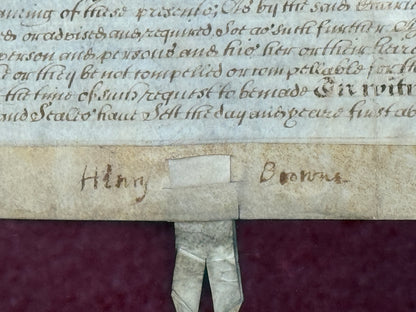 ncing of these presents; As by the said
ed or advised and required. Soe as such further
person and persons and his her or their heirs
or they be not compelled or compellable for th
the time of such request to be made In witn
and Seales have Sett the day and yeare first ab
Henry Browne